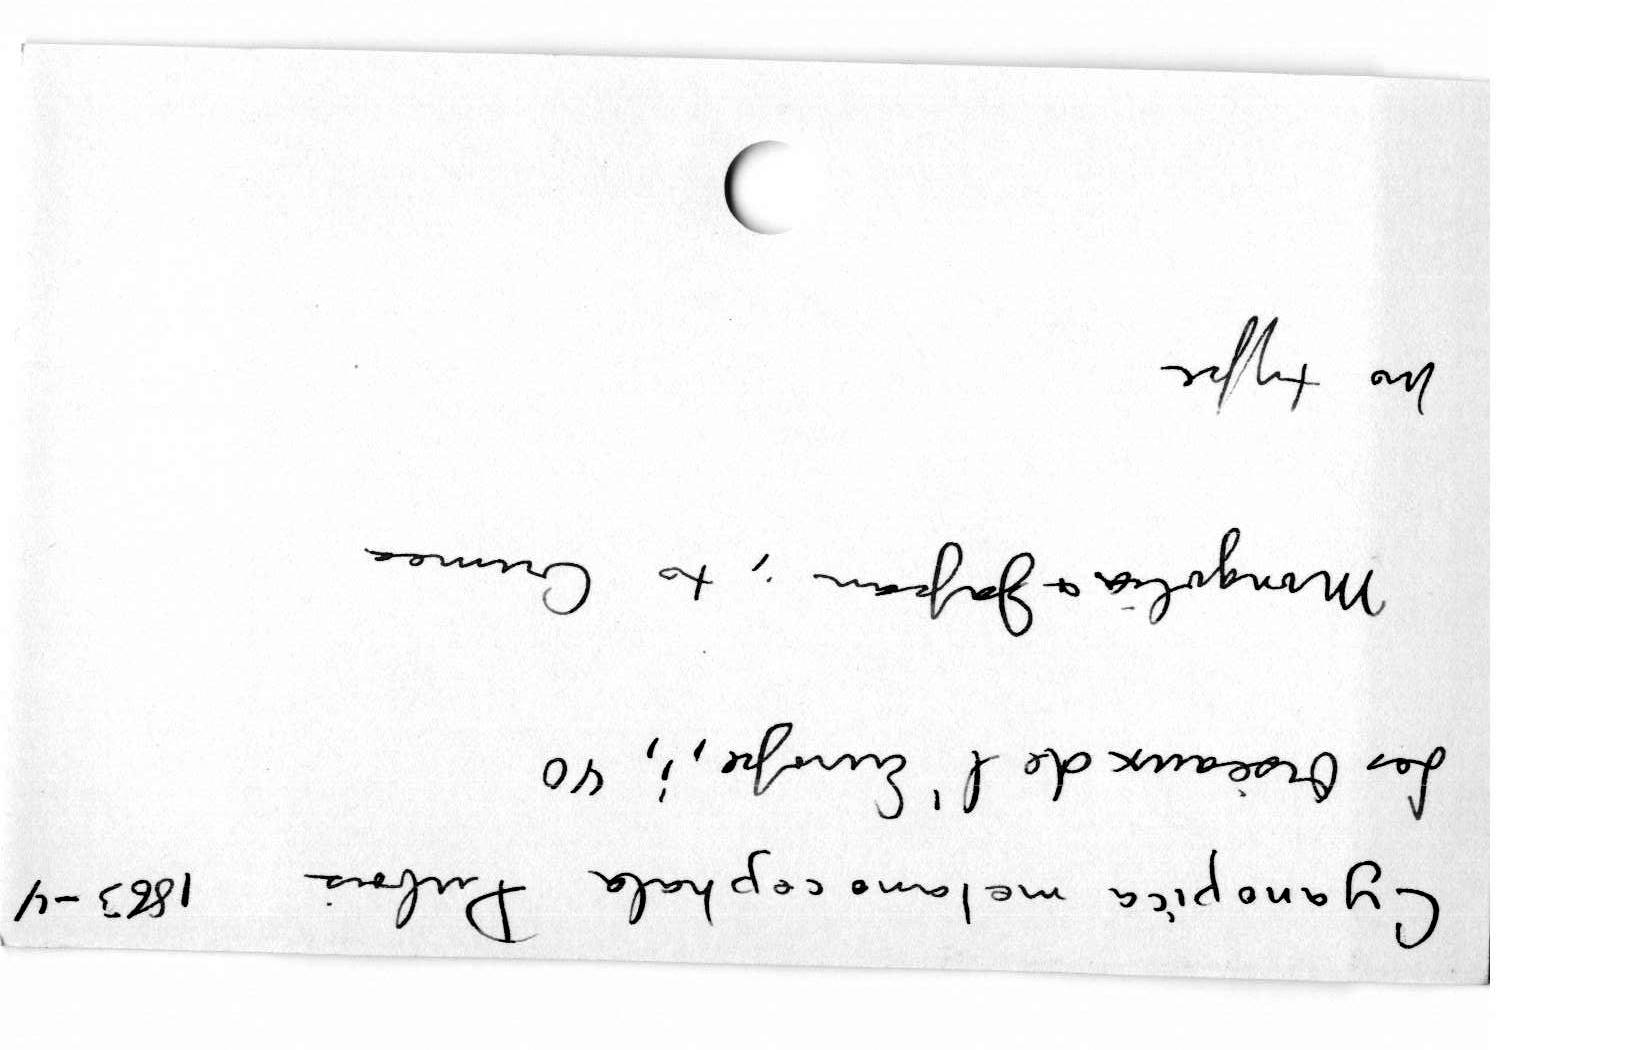 Cyanopica melanocephala Dubois 1883-4
Les Oiseaux de l'Europe, i, 40
Mongolia & Japan; to Crimea
no type